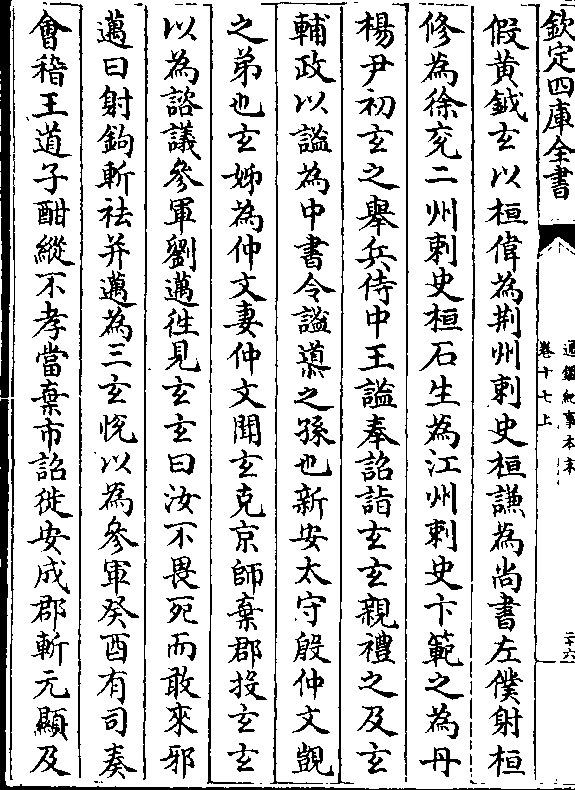 欽定四庫全書
通鑑紀事本末
卷十七上
二十六
假黄鉞玄以桓偉為荆州刺史桓謙為尚書左僕射桓
修為徐兖二州刺史桓石生為江州刺史卞範之為丹
楊尹初玄之舉兵侍中王謐奉詔詣玄玄親禮之及玄
輔政以謐為中書令謐導之孫也新安太守殷仲文覬
之弟也玄姊為仲文妻仲文聞玄克京師棄郡投玄玄
以為諮議參軍劉邁徃見玄玄曰汝不畏死而敢來邪
邁曰射鉤斬袪并邁為三玄悅以為參軍癸酉有司奏
會稽王道子酣縱不孝當棄市詔徙安成郡斬元顯及